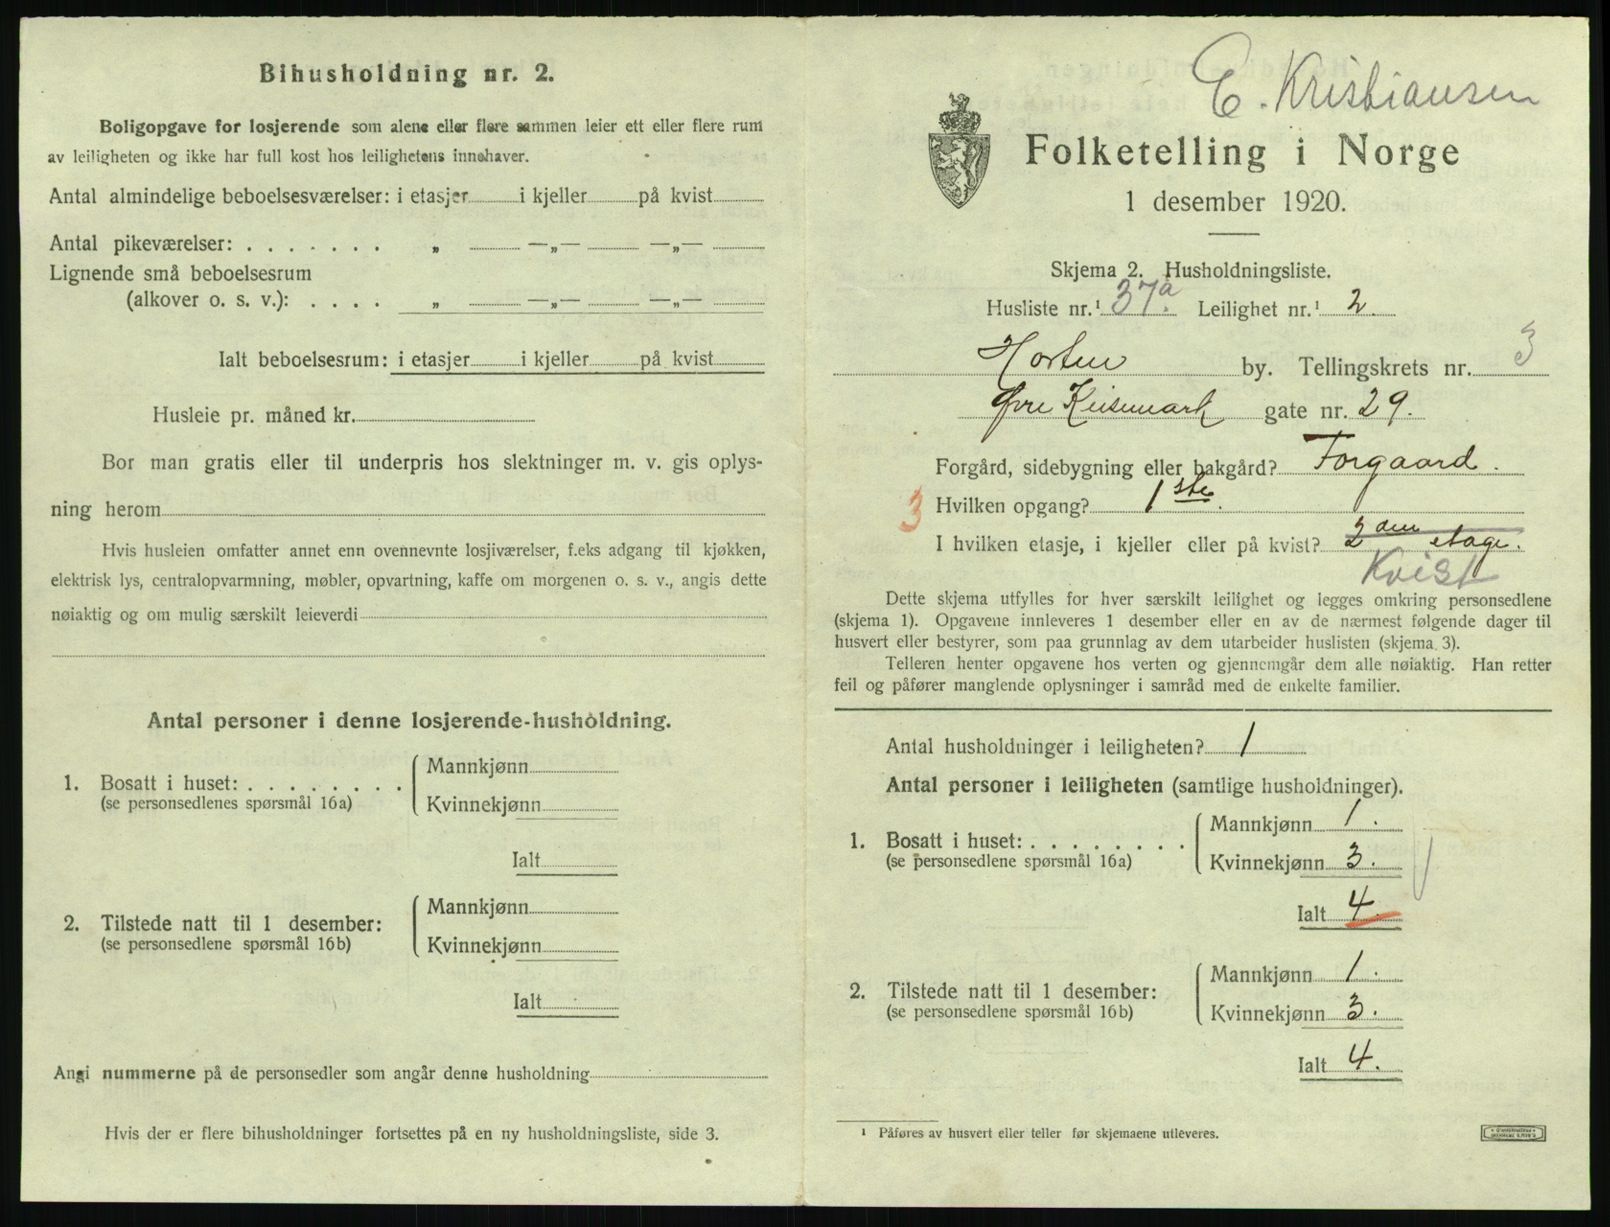 Bihusholdning nr. 2.
Boligopgave for losjerende som alene eller flere sammen leier ett eller flere rum
av leiligheten og ikke har full kost hos leilighetens innehaver.
Antal almindelige beboelsesværelser: i etasjer i kjeller på kvist
Antal pikeværelser: . . . . . . . „ —„— —„—
Lignende små beboelsesrum
(alkover o. s. v.): . . . . „ —„— —„—
Ialt beboelsesrum: i etasjer i kjeller på kvist
Husleie pr. måned kr.
Bor man gratis eller til underpris hos slektninger m. v. gis oplys-
ning herom
Hvis husleien omfatter annet enn ovennevnte losjiværelser, f.eks adgang til kjøkken,
elektrisk lys, centralopvarmning, møbler, opvartning, kaffe om morgenen o. s. v., angis dette
nøiaktig og om mulig særskilt leieverdi
Antal personer i denne losjerende-husholdning.
1. Bosatt i huset: . . . . . . . .
(se personsedlenes spørsmål 16a)
Mannkjønn
Kvinnekjønn
Ialt
2. Tilstede natt til 1 desember:
(se personsedlene spørsmål 16b)
Mannkjønn
Kvinnekjønn
Ialt
Angi nummerne på de personsedler som angår denne husholdning
Hvis der er flere bihusholdninger fortsettes på en ny husholdningsliste, side 3.
E. Kristiansen
Folketelling i Norge
1 desember 1920.
Skjema 2. Husholdningsliste.
Husliste nr.¹ 37a. Leilighet nr.¹ 2.
Horten by. Tellingskrets nr. 3
Øvre Keisemark gate nr. 29.
Forgård, sidebygning eller bakgård? Forgaard.
3 Hvilken opgang? 1ste.
I hvilken etasje, i kjeller eller på kvist? 2den etage.
Kvist
Dette skjema utfylles for hver særskilt leilighet og legges omkring personsedlene
(skjema 1). Opgavene innleveres 1 desember eller en av de nærmest følgende dager til
husvert eller bestyrer, som paa grunnlag av dem utarbeider huslisten (skjema 3).
Telleren henter opgavene hos verten og gjennemgår dem alle nøiaktig. Han retter
feil og påfører manglende oplysninger i samråd med de enkelte familier.
Antal husholdninger i leiligheten? 1
Antal personer i leiligheten (samtlige husholdninger).
1. Bosatt i huset: . . . . . . . .
(se personsedlene spørsmål 16a)
Mannkjønn 1.
Kvinnekjønn 3.
Ialt 4.
2. Tilstede natt til 1 desember:
(se personsedlene spørsmål 16b)
Mannkjønn 1.
Kvinnekjønn 3.
Ialt 4.
¹ Påføres av husvert eller teller før skjemaene utleveres.